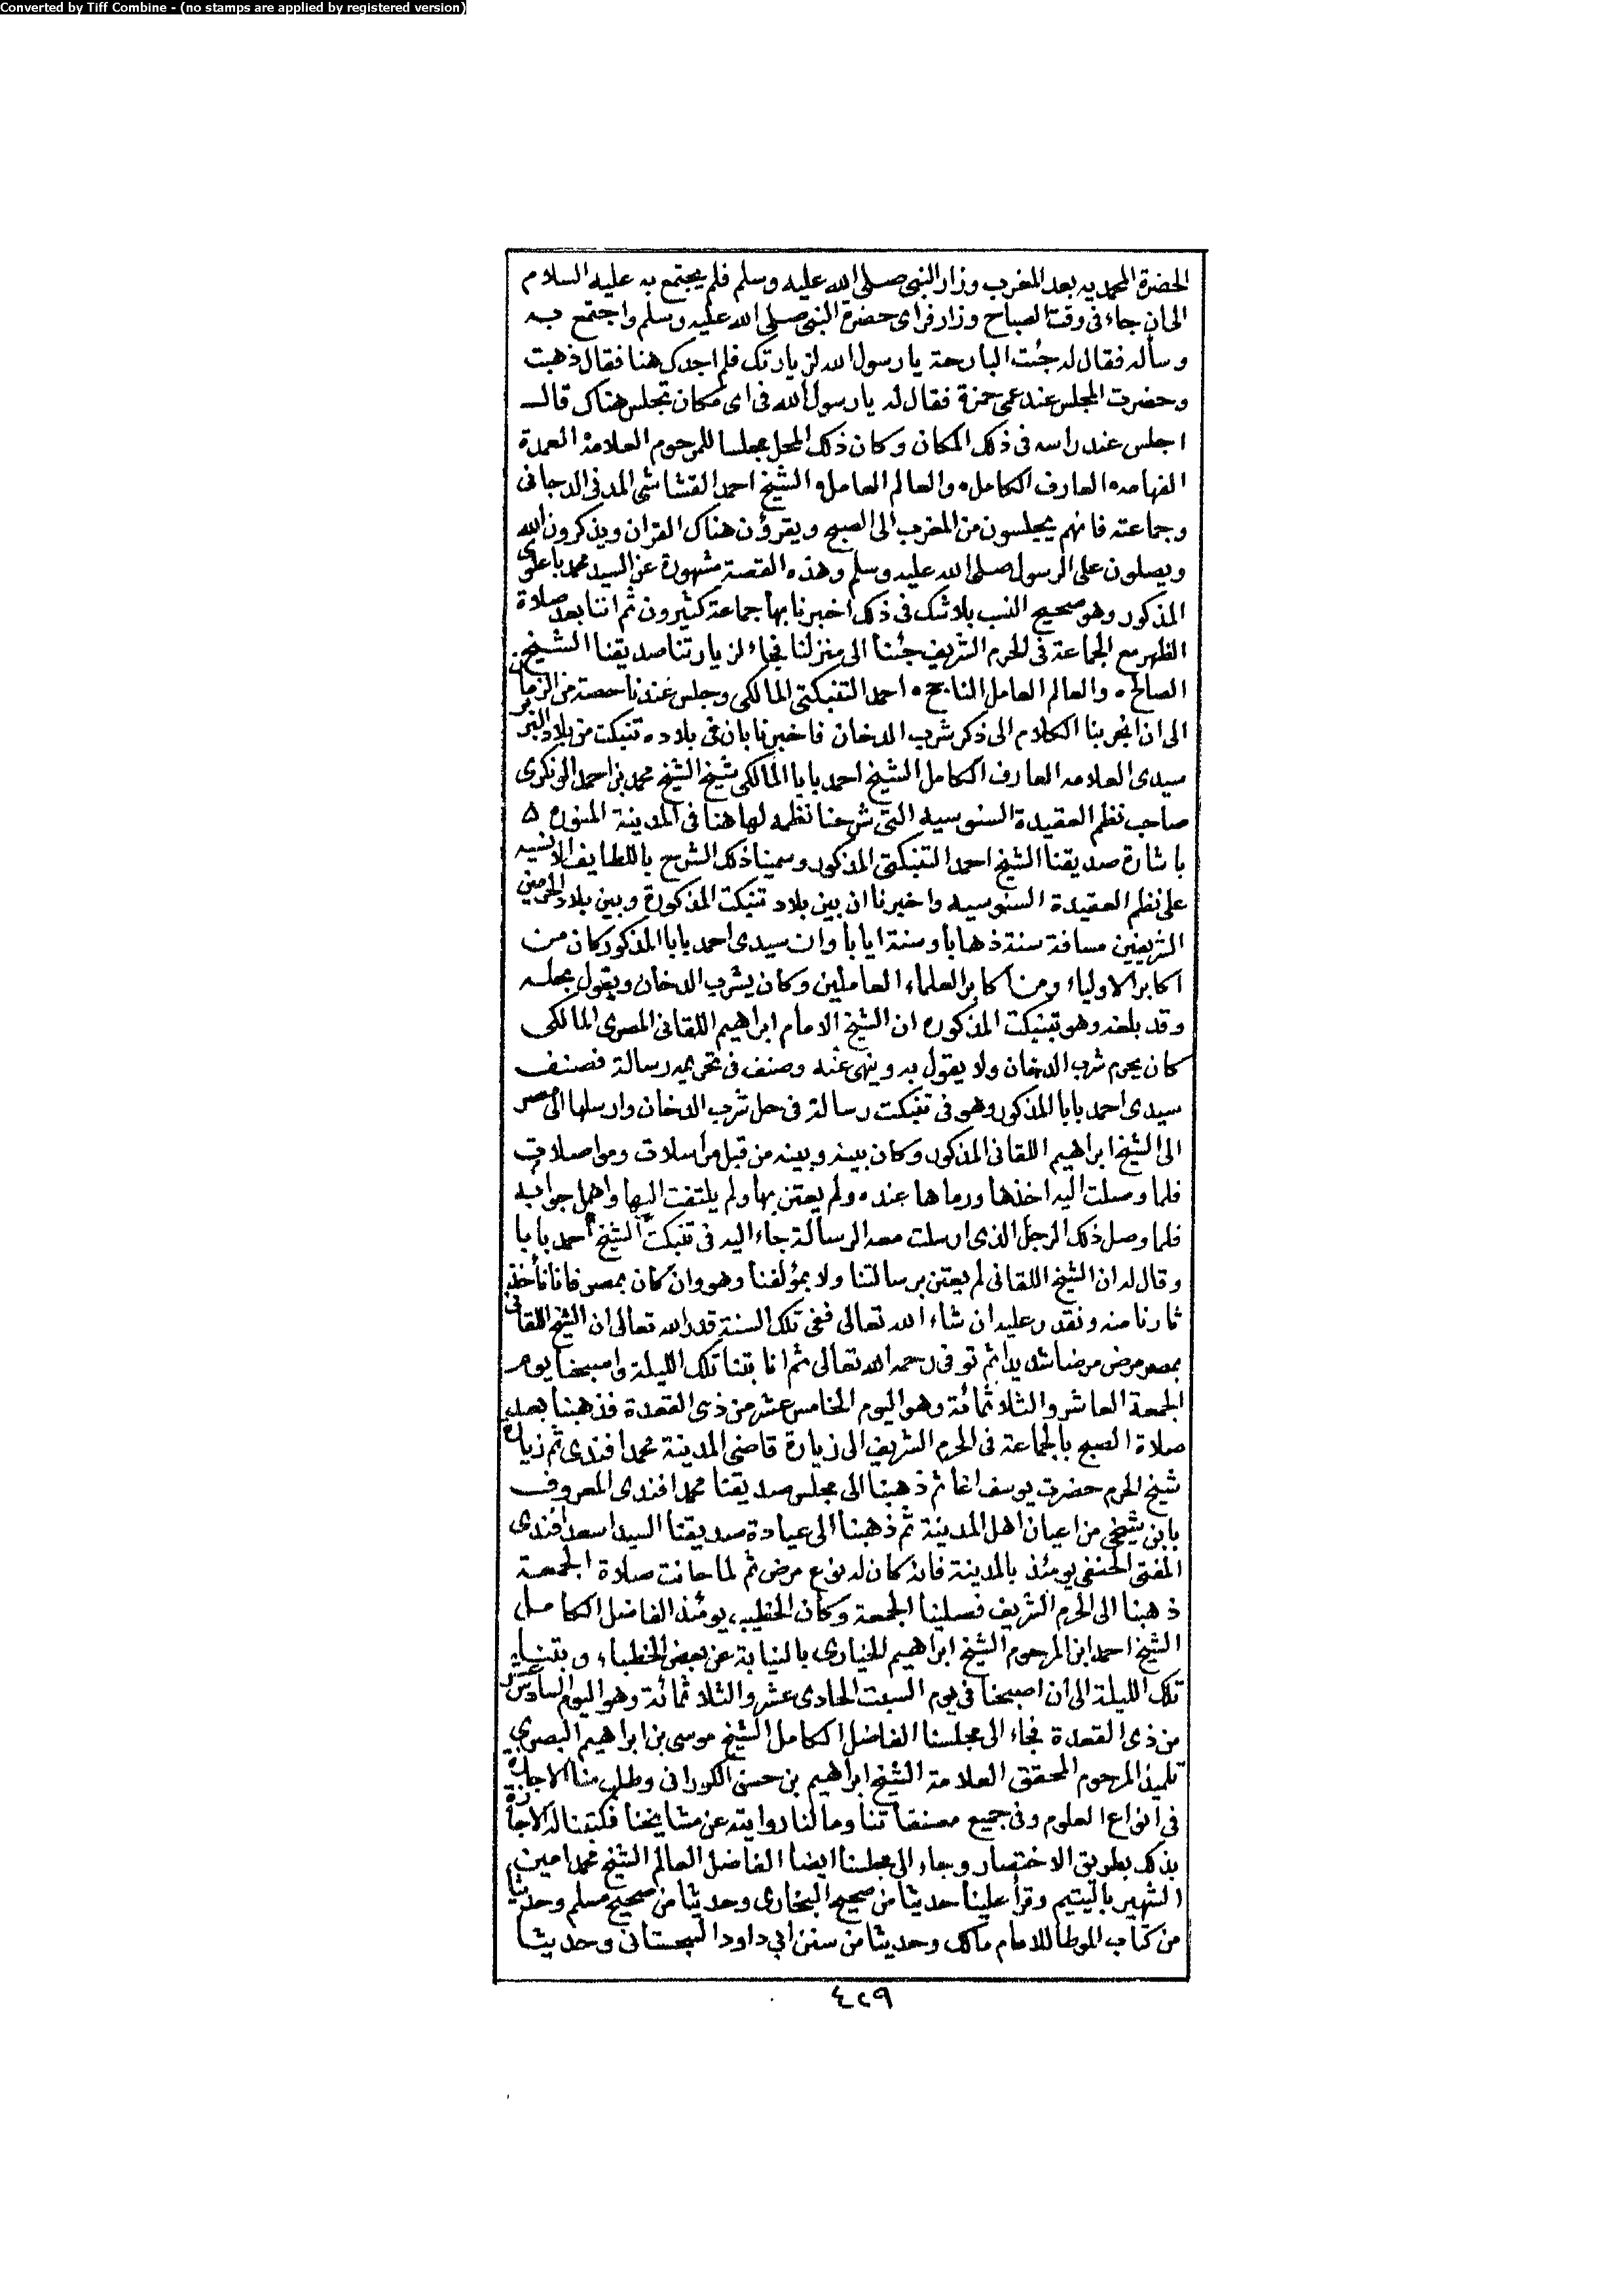 Converted by Tiff Combine - (no stamps are applied by registered version)
الحضرة المحمديه بعد المغرب وزار النبى صلى الله عليه وسلم فلم يجتمع به عليه السلام
الى ان جاء فى وقت الصباح وزار فراى حضرة النبى صلى الله عليه وسلم واجتمع به
وساله فقال له جئت البارحة يا رسول الله لزيارتك فلم اجدك هنا فقال ذهبت
وحضرت المجلس عند عمى حمزة فقال له يا رسول الله فى اى مكان تجلس هناك قال
اجلس عند راسه فى ذلك المكان وكان ذلك المحل مجلسا للمرحوم العلامة العمدة
الفهامه العارف الكامل والعالم العامل الشيخ احمد القشاشى المدنى الدجانى
وجماعته فانهم يجلسون من المغرب الى الصبح ويقرؤن هناك القران ويذكرون الله
ويصلون على الرسول صلى الله عليه وسلم وهذه القصة مشهورة عن السيد محمد باعلوى
المذكور وهو صحيح النسب بلاشك فى ذلك اخبرنا بها جماعة كثيرون ثم اننا بعد صلاة
الظهر مع الجماعة فى الحرم الشريف جئنا الى منزلنا فجاء لزيارتنا صديقنا الشيخ
الصالح والعالم العامل الناجح احمد التنبكتى المالكى وجلس عندنا حصة من الزمان
الى ان انجر بنا الكلام الى ذكر شرب الدخان فاخبرنا بان فى بلاده تنبكت من بلاد التبر
سيدى العلامه العارف الكامل الشيخ احمد بابا المالكى شيخ الشيخ محمد بن احمد الونكرى
صاحب نظم العقيدة السنوسيه التى شرحنا نظمه لها هنا فى المدينة المنوره
باشارة صديقنا الشيخ احمد التنبكتى المذكور وسمينا ذلك الشرح باللطايف الانسيه
على نظم العقيدة السنوسيه واخبرنا ان بين بلاد تنبكت المذكورة وبين بلاد الحرمين
الشريفين مسافة سنة ذهابا وسنة ايابا وان سيدى احمد بابا المذكور كان من
اكابر الاولياء ومن اكابر العلماء العاملين وكان يشرب الدخان ويقول بحله
وقد بلغه وهو بتنبكت المذكوره ان الشيخ الامام ابراهيم اللقانى المصرى المالكى
كان يحرم شرب الدخان ولا يقول به وينهى عنه وصنف فى تحريمه رسالة فصنف
سيدى احمد بابا المذكور وهو فى تنبكت رسالة فى حل شرب الدخان وارسلها الى مصر
الى الشيخ ابراهيم اللقانى المذكور وكان بينه وبينه من قبل مراسلات ومواصلات
فلما وصلت اليه اخذها ورماها عنده ولم يعتن بها ولم يلتفت اليها واهمل جوابه
فلما وصل ذلك الرجل الذى ارسلت معه الرسالة جاء اليه فى تنبكت الشيخ احمد بابا
وقال له ان الشيخ اللقانى لم يعتن برسالتنا ولا بمؤلفنا وهو وان كان بمصر فانا نأخذ
ثارنا منه ونقدر عليه ان شاء الله تعالى ففى تلك السنة قدر الله تعالى ان الشيخ اللقانى
بمصر مرض مرضا شديدا ثم توفى رحمه الله تعالى ثم انا بتنا تلك الليلة واصبحنا يوم
الجمعة العاشر والثلاثمائة وهو اليوم الخامس عشر من ذى القعدة فذهبنا بعد
صلاة الصبح بالجماعة فى الحرم الشريف الى زيارة قاضى المدينة محمد افندى ثم زيارة
شيخ الحرم حضرت يوسف اغا ثم ذهبنا الى مجلس صديقنا محمد افندى المعروف
بابن شيخى من اعيان اهل المدينة ثم ذهبنا الى عيادة صديقنا السيد اسعد افندى
المفتى الحنفى يومئذ بالمدينة فانه كان له نوع مرض ثم لما حانت صلاة الجمعة
ذهبنا الى الحرم الشريف فصلينا الجمعة وكان الخطيب يومئذ الفاضل الكامل
الشيخ احمد ابن المرحوم الشيخ ابراهيم الخيارى بالنيابة عن بعض الخطباء وبتنا
تلك الليلة الى ان اصبحنا فى يوم السبت الحادى عشر والثلاثمائة وهو اليوم السادس عشر
من ذى القعدة فجاء الى مجلسنا الفاضل الكامل الشيخ موسى بن ابراهيم البصرى
تلميذ المرحوم المحقق العلامة الشيخ ابراهيم بن حسن الكورانى وطلب منا الاجازة
فى انواع العلوم وفى جميع مصنفاتنا وما لنا روايته عن مشايخنا فكتبنا له الاجازة
بذلك بطريق الاختصار وجاء الى مجلسنا ايضا الفاضل العالم الشيخ محمد امين
الشهير باليتيم وقرأ علينا حديثا من صحيح البخارى وحديثا من صحيح مسلم وحديثا
من كتاب الموطا للامام مالك وحديثا من سنن ابى داود السجستانى وحديثا
٤٢٩